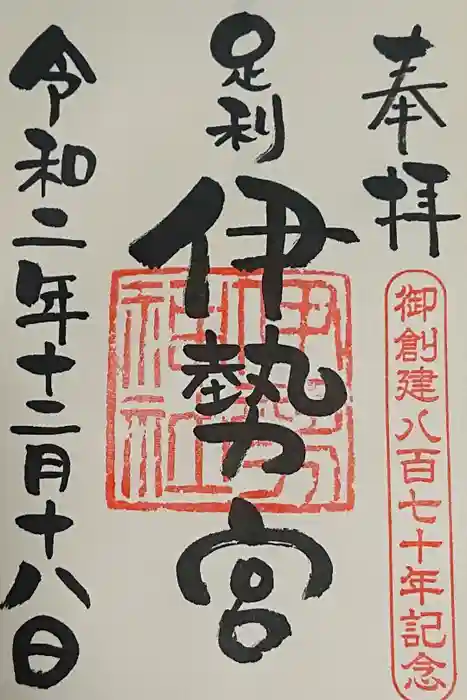 奉拝
御創建八百七十年記念
足利
伊勢宮
伊勢神社
令和二年十二月十八日